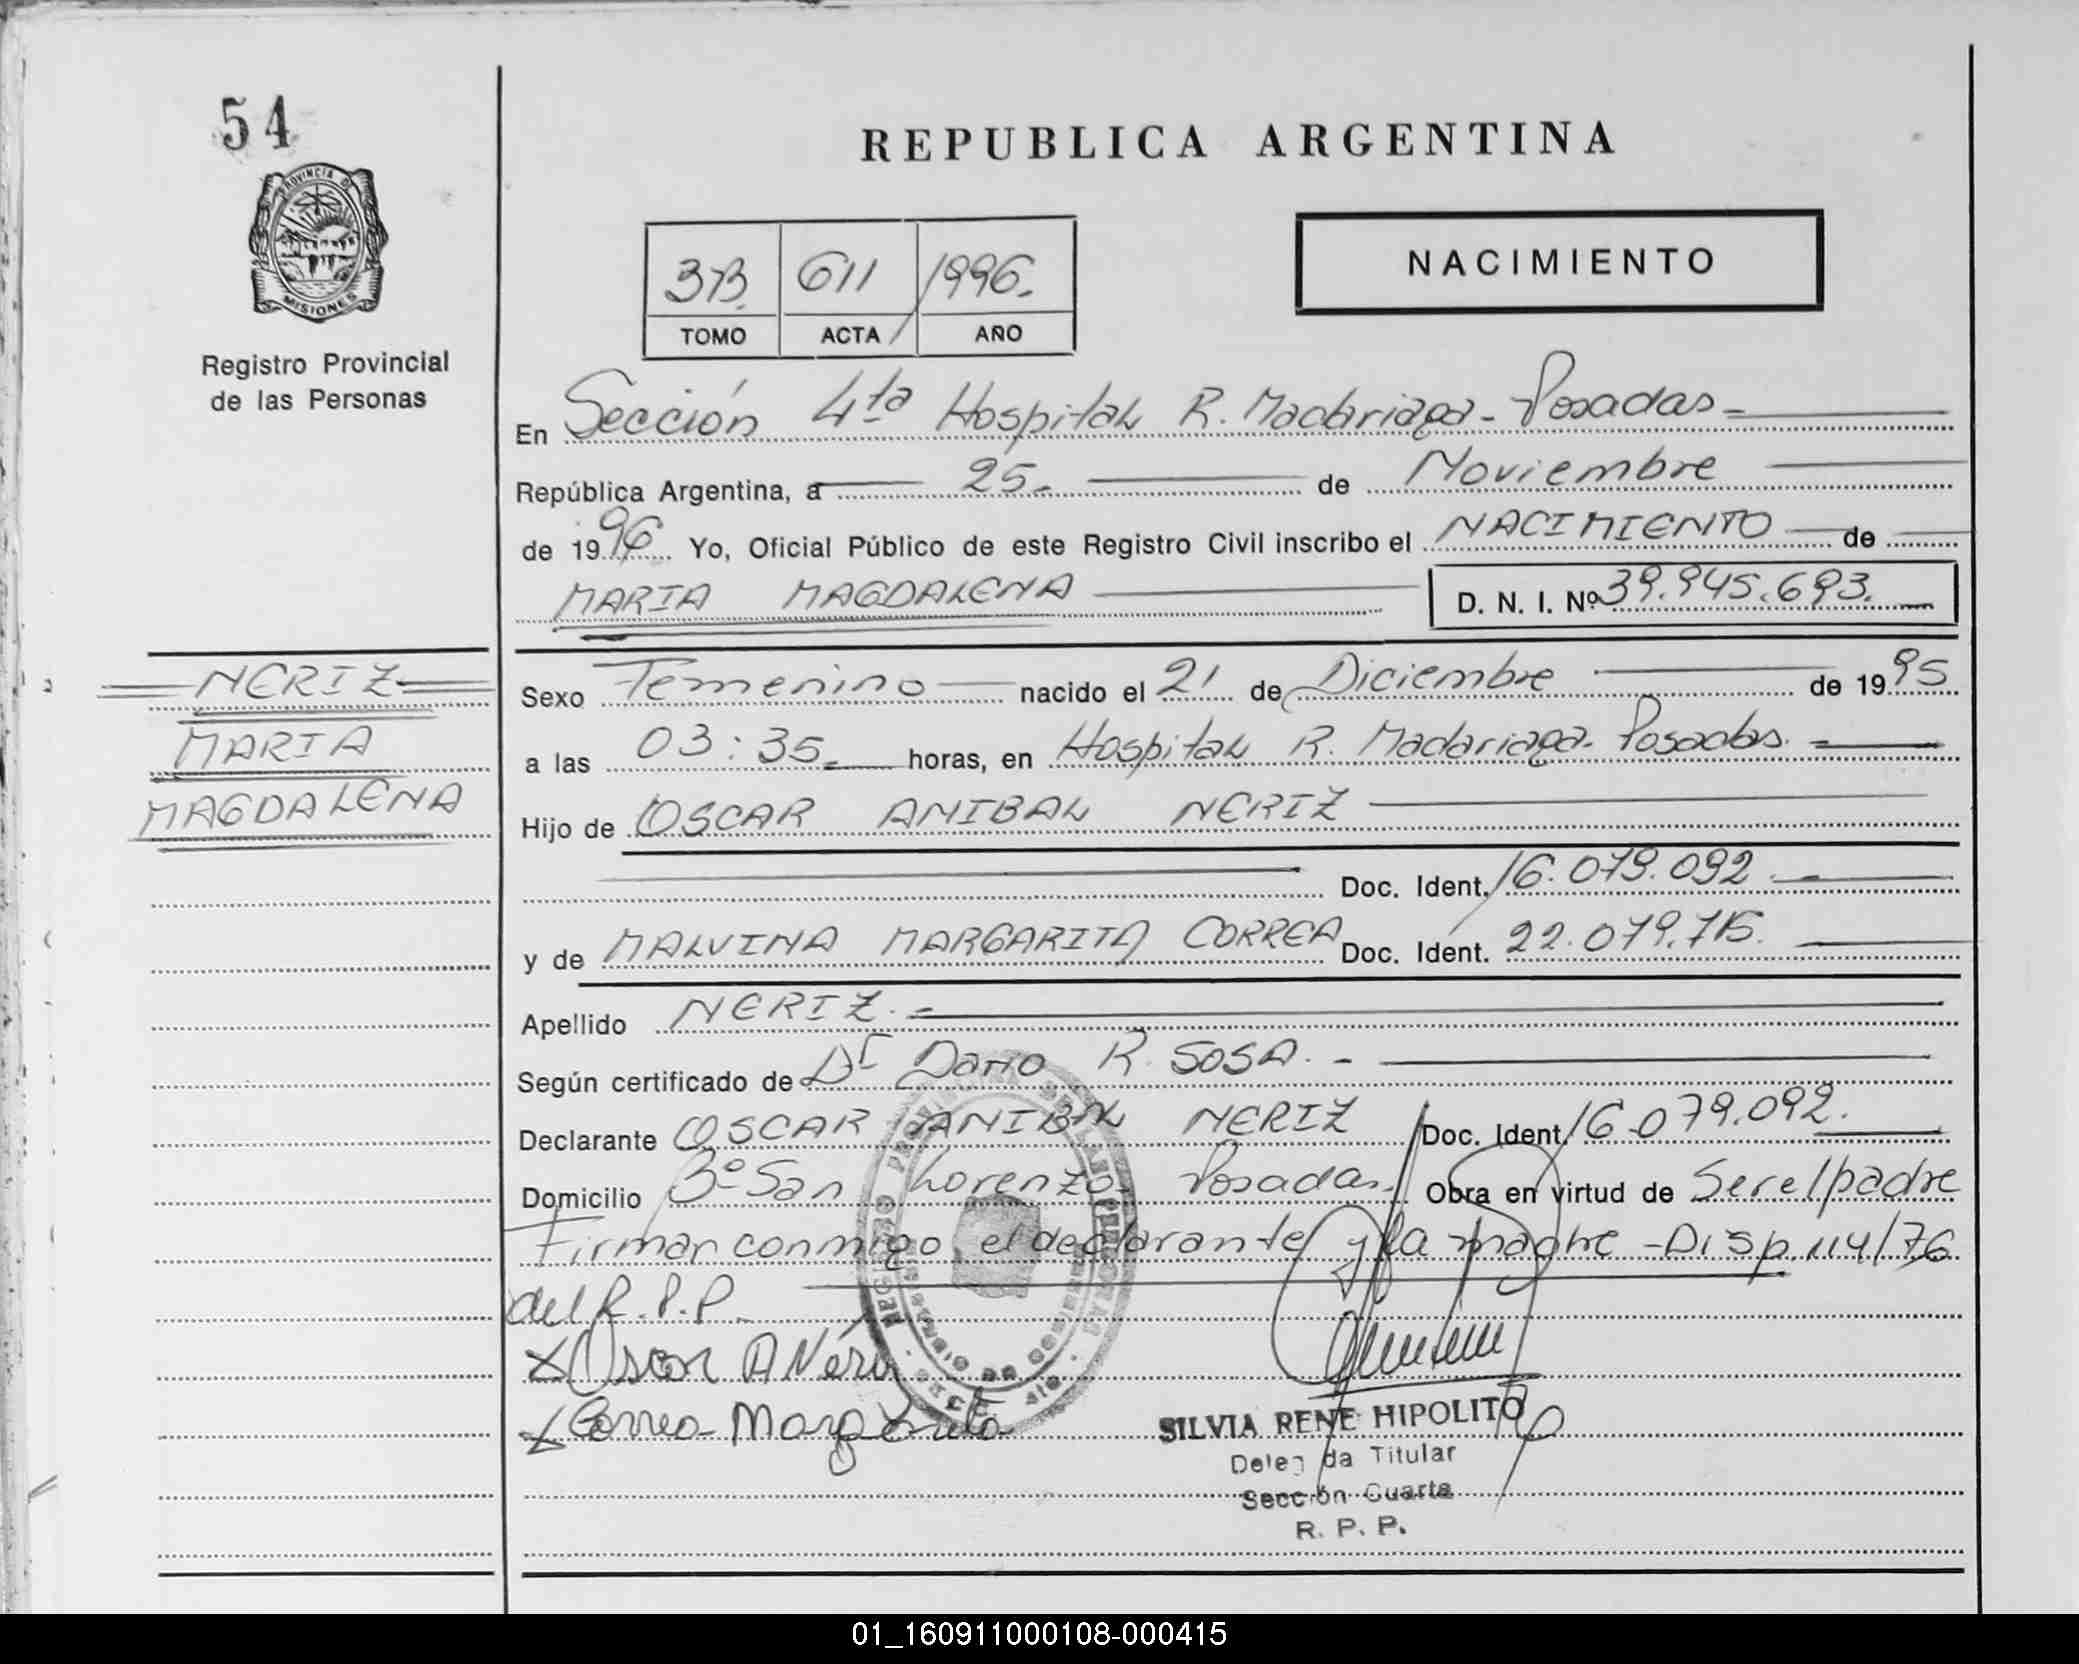 54
PROVINCIA DE
MISIONES
Registro Provincial
de las Personas
REPUBLICA ARGENTINA
3B 611 1996.
TOMO ACTA AÑO
NACIMIENTO
En Sección 4ta Hospital R. Madariaga - Posadas -
República Argentina, a 25. de Noviembre
de 1996 Yo, Oficial Público de este Registro Civil inscribo el NACIMIENTO de
MARIA MAGDALENA D. N. I. Nº 39.945.693.
NERIZ
MARIA
MAGDALENA
Sexo Femenino nacido el 21 de Diciembre de 1995
a las 03:35 horas, en Hospital R. Madariaga - Posadas.
Hijo de OSCAR ANIBAL NERIZ
Doc. Ident. 16.079.092
y de MALVINA MARGARITA CORREA Doc. Ident. 22.079.715.
Apellido NERIZ. -
Según certificado de Dr Dario R. SOSA. -
Declarante OSCAR ANIBAL NERIZ Doc. Ident. 16.079.092.
Domicilio Bº San Lorenzo - Posadas. Obra en virtud de Ser el padre
Firman conmigo, el declarante y la madre - Disp. 114/76
del R.P.P.
x Oscar A Neri
x Correa Margarita
SILVIA RENE HIPOLITO
Delegada Titular
Sección Cuarta
R. P. P.
01_160911000108-000415